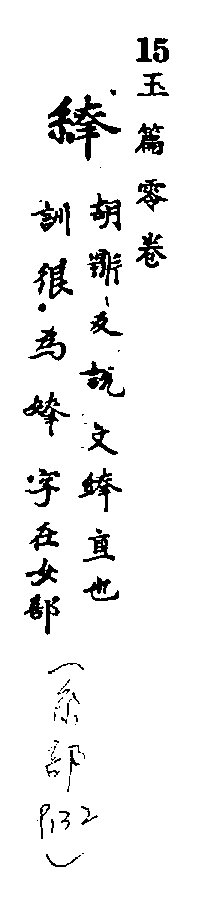 15玉篇零卷
緈
胡鼎反說文緈直也
訓很為婞字在女部
(糸部P132)